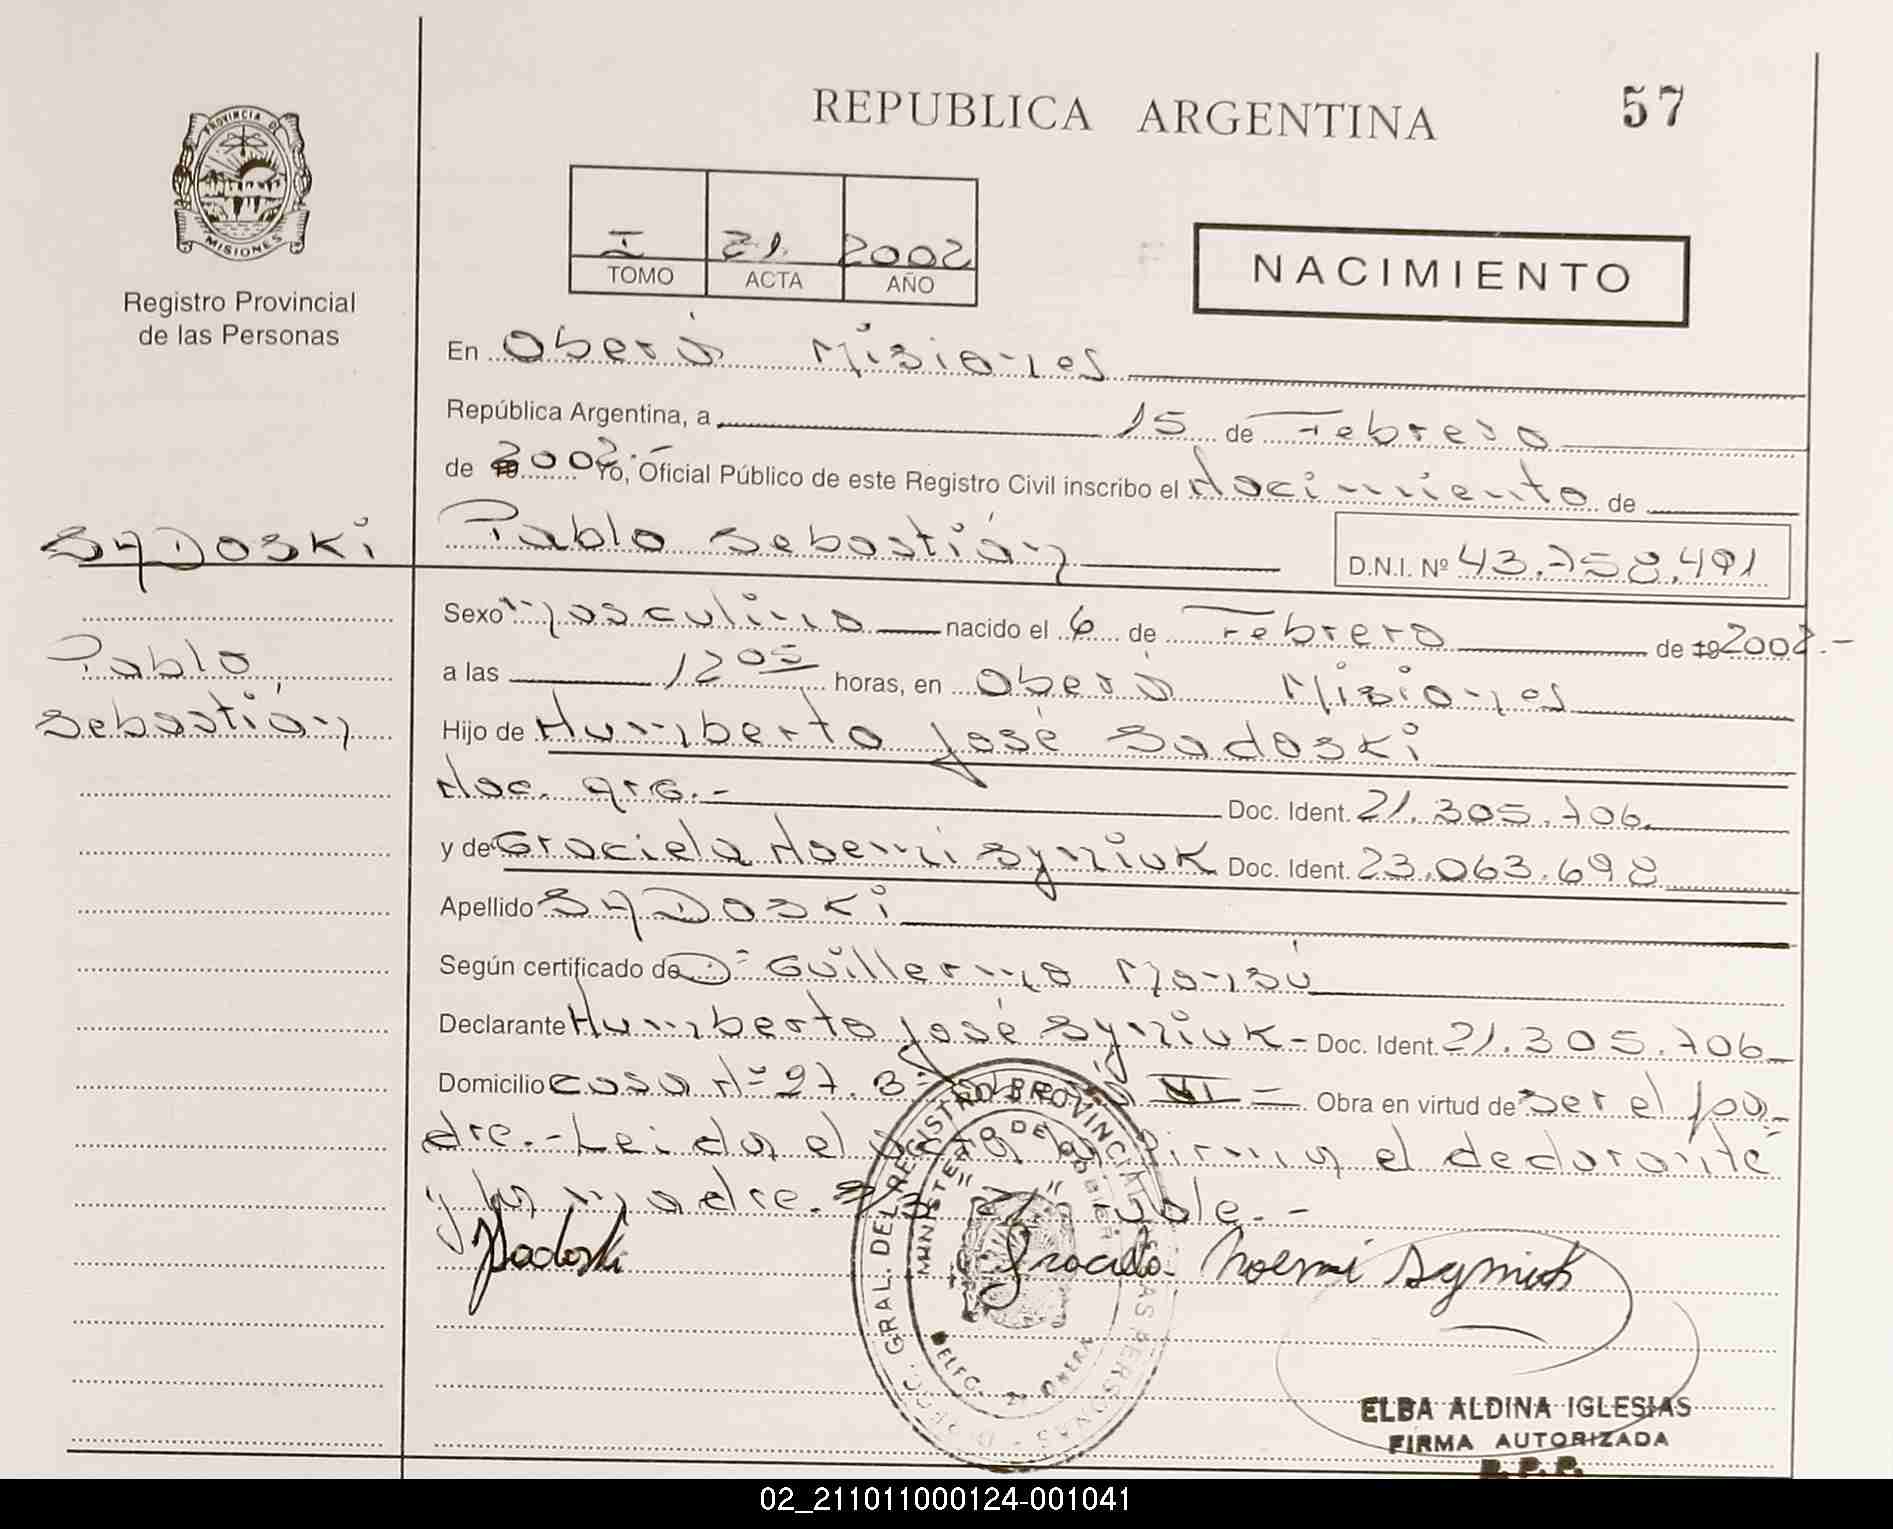 REPUBLICA ARGENTINA
57
PROVINCIA DE
MISIONES
Registro Provincial
de las Personas
I 21 2002
TOMO ACTA AÑO
NACIMIENTO
En Oberá Misiones
República Argentina, a 15 de Febrero
de 2002.- Yo, Oficial Público de este Registro Civil inscribo el Nacimiento de
SADOSKi
Pablo Sebastián
D.N.I. Nº 43.758.491
Pablo
Sebastián
Sexo Masculino nacido el 6 de Febrero de 19 2002.-
a las 12 05 horas, en Oberá Misiones
Hijo de Humberto José Sadoski
Nac. arg.- Doc. Ident. 21.305.706
y de Graciela Noemi Syniuk Doc. Ident. 23.063.698
Apellido SADOSKi
Según certificado de Dº Guillermo Monsú
Declarante Humberto José Syniuk - Doc. Ident. 21.305.706
Domicilio casa Nº 27. Bº VI = Obra en virtud de ser el pa-
dre.- Leida el acta la firma el declarante
y la madre. "21" vale.-
Sadoski
Graciela Noemi Syniuk
GRAL. DEL REGISTRO PROVINCIAL
LAS PERSONAS
MINISTERIO DE GOBIER
DELEG. OBERA
ELBA ALDINA IGLESIAS
FIRMA AUTORIZADA
R. P. P.
02_211011000124-001041